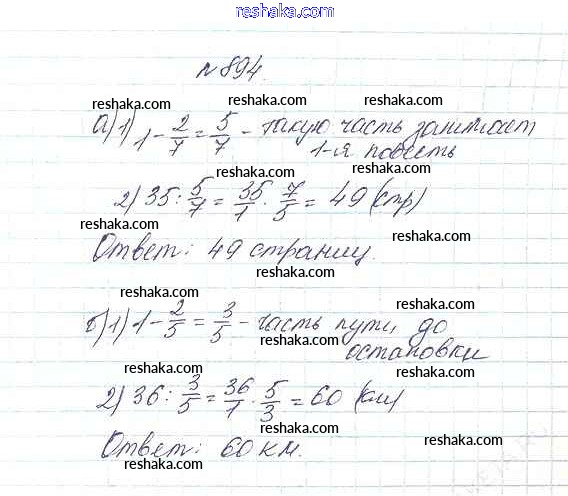 reshaka.com
№894.
reshaka.com reshaka.com
reshaka.com reshaka.com
а) 1) 1 - 2/7 = 5/7 - такую часть занимает
1-я повесть
reshaka.com reshaka.com
reshaka.com
2) 35 : 5/7 = 35/1 · 7/5 = 49 (стр)
reshaka.com reshaka.com
Ответ: 49 страниц.
reshaka.com
reshaka.com reshaka.com
б) 1) 1 - 2/5 = 3/5 - часть пути до
остановки
reshaka.com reshaka.com
reshaka.com reshaka.com
2) 36 : 3/5 = 36/1 · 5/3 = 60 (км)
reshaka.com reshaka.com
Ответ: 60 км.
reshaka.com reshaka.com